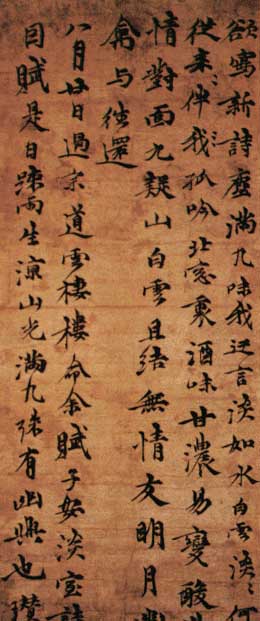 欲寫新詩塵滿几味我迂言淡如水白雲淡〻何
從来伴我孤吟北窓裏酒味甘濃易變酸
情對面九疑山白雲且結無情友明月
禽与往還
八月廿日過宗道雲棲樓命余賦子安淡室詩
因賦是日疎雨生涼山光滿几殊有幽興也瓚